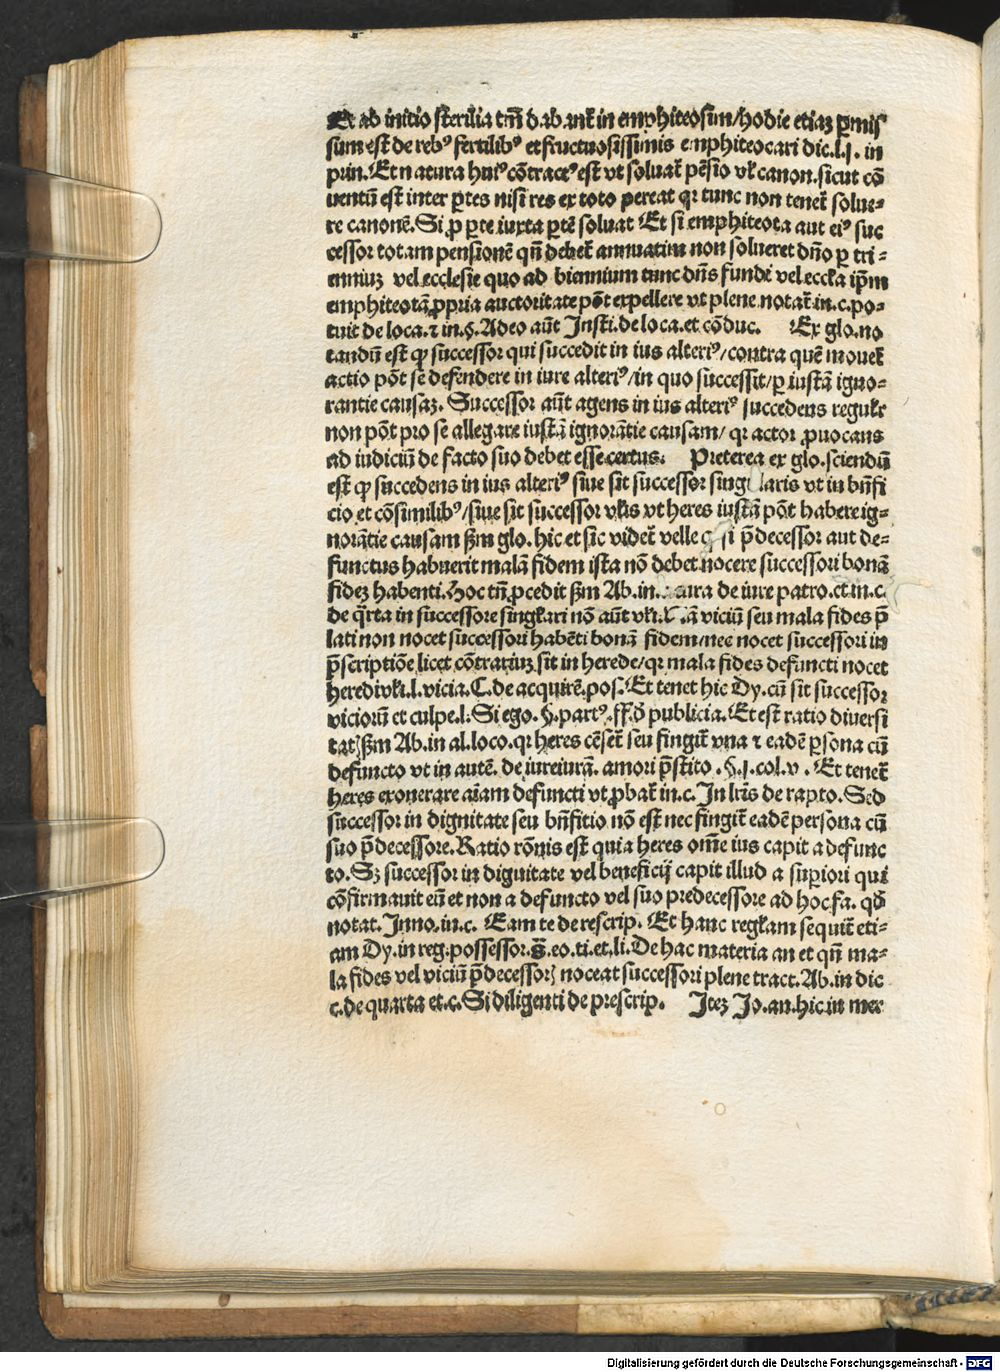 Et ab initio sterilia tm̄ dabant᷑ in emphiteosim/hodie etiaꝫ ꝑmis
sum est de rebꝰ fertilibꝰ et fructuosissimis emphiteocari dic.l.j. in
prin. Et natura huiꝰ cōtractꝰ est vt soluat᷑ pēsio vl̄ canon.sicut cō
uentū est inter ꝑtes nisi res ex toto pereat qꝛ tunc non tenet᷑ solue⸗
re canonē. Si ꝓ ꝑte iuxta ꝑtē soluat Et si emphiteota aut eiꝰ suc
cessor totam pensionē qn̄ debet᷑ annuatim non solueret dn̄o ꝑ tri⸗
enniuꝫ vel ecclesie quo ad biennium tunc dn̄s fundi vel eccl̄a ip̄m
emphiteotā ꝓpria auctoritate pōt expellere vt plene notat᷑ in.c.po⸗
tuit de loca.⁊ in.§. Adeo aūt Insti.de loca.et cōduc. Ex glo.no
tandū est ꝙ successor qui succedit in ius alteriꝰ/contra quē mouet᷑
actio pōt se defendere in iure alteriꝰ/in quo successit/ꝑ iustā igno⸗
rantie causaꝫ. Successor aūt agens in ius alteriꝰ succedens regul̄r
non pōt pro se allegare iustā ignorātie causam/ qꝛ actor ꝓuocans
ad iudiciū de facto suo debet esse certus. Preterea ex glo.sciendū
est ꝙ succedens in ius alteriꝰ siue sit successor singularis vt in bn̄fi
cio et cōsimilibꝰ/siue sit successor vl̄is vt heres iustā pōt habere ig⸗
norātie causam ẜm glo. hic et sic videt᷑ velle si p̄decessor aut de⸗
functus habuerit malā fidem ista nō debet nocere successori bonā
fideꝫ habenti. Hoc tn̄ ꝓcedit ẜm Ab.in.c. cura de iure patro.et.in.c.
de q̄rta in successore singl̄ari nō aūt vl̄i. viciū seu mala fides p̄
lati non nocet successori habēti bonā fidem/nec nocet successori in
p̄scriptiōe licet cōtrariuꝫ sit in herede/qꝛ mala fides defuncti nocet
heredi vl̄i.l.vicia.C.de acquirē.pos. Et tenet hic Dy.cū sit successor
viciorū et culpe.l. Si ego. §.partꝰ.ff.đ publicia. Et est ratio diuersi
tatꝭ ẜm Ab.in al.loco.qꝛ heres cēset᷑ seu fingit᷑ vna ⁊ eadē ꝑsona cū
defuncto vt in autē. de iureiurā. amori p̄stito .§.j.col.v . Et tenet᷑
heres exonerare aīam defuncti vt ꝓbat᷑ in.c. In lr̄is de rapto. Sed
successor in dignitate seu bn̄fitio nō est nec fingit᷑ eadē persona cū
suo p̄decessore. Ratio rōnis est quia heres om̄e ius capit a defunc
to. Sꝫ successor in dignitate vel beneficij capit illud a suꝑiori qui
cōfirmauit eū et non a defuncto vel suo predecessore ad hoc.fa. qđ
notat. Inno.in.c. Eam te de rescrip. Et hanc regl̄am sequit᷑ eti⸗
am Dy.in reg.possessor.s̄.eo.ti.et.li. De hac materia an et qn̄ ma⸗
la fides vel viciū p̄decessorꝭ noceat successori plene tract. Ab.in dic
c.de quarta et.c. Si diligenti de prescrip. Iteꝫ Jo.an.hic.in mer